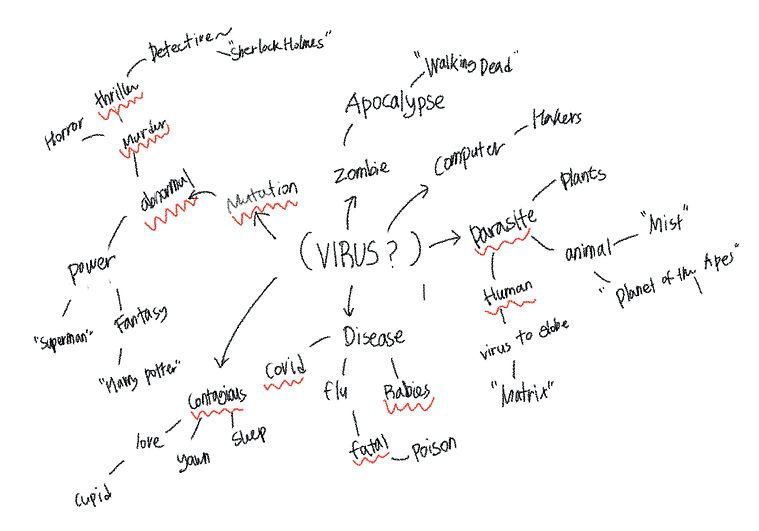 Detective
"Sherlock Holmes"
"Walking Dead"
thriller
Apocalypse
Horror
Murder
Hakers
Computer
Zombie
abnormal
Mutation
Plants
Parasite
"Mist"
(VIRUS?)
animal
Power
"Planet of the Apes"
Human
"Superman"
Fantasy
Disease
virus to globe
"Harry potter"
Covid
flu
Rabies
"Matrix"
Contagious
love
yawn
sleep
fatal
Poison
cupid